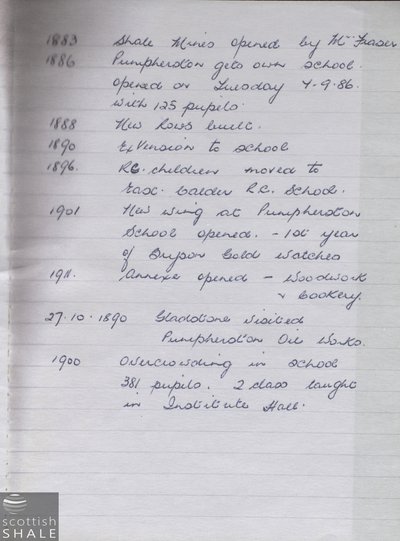 1883 Shale Mines opened by Mr Fraser
1886 Pumpherston gets own school.
opened on Tuesday 7-9-86.
with 125 pupils.
1888 New Rows built.
1890 Extension to school
1896. R.C. children moved to
East Calder R.C. School.
1901 New wing at Pumpherston
School opened. - 1st year
of Bryson Gold Watches
1911. Annexe opened - Woodwork
& Cookery.
27.10.1890 Gladstone visited
Pumpherston Oil Works.
1900 Overcrowding in school
381 pupils. 2 class taught
in Institute Hall.
scottish
SHALE